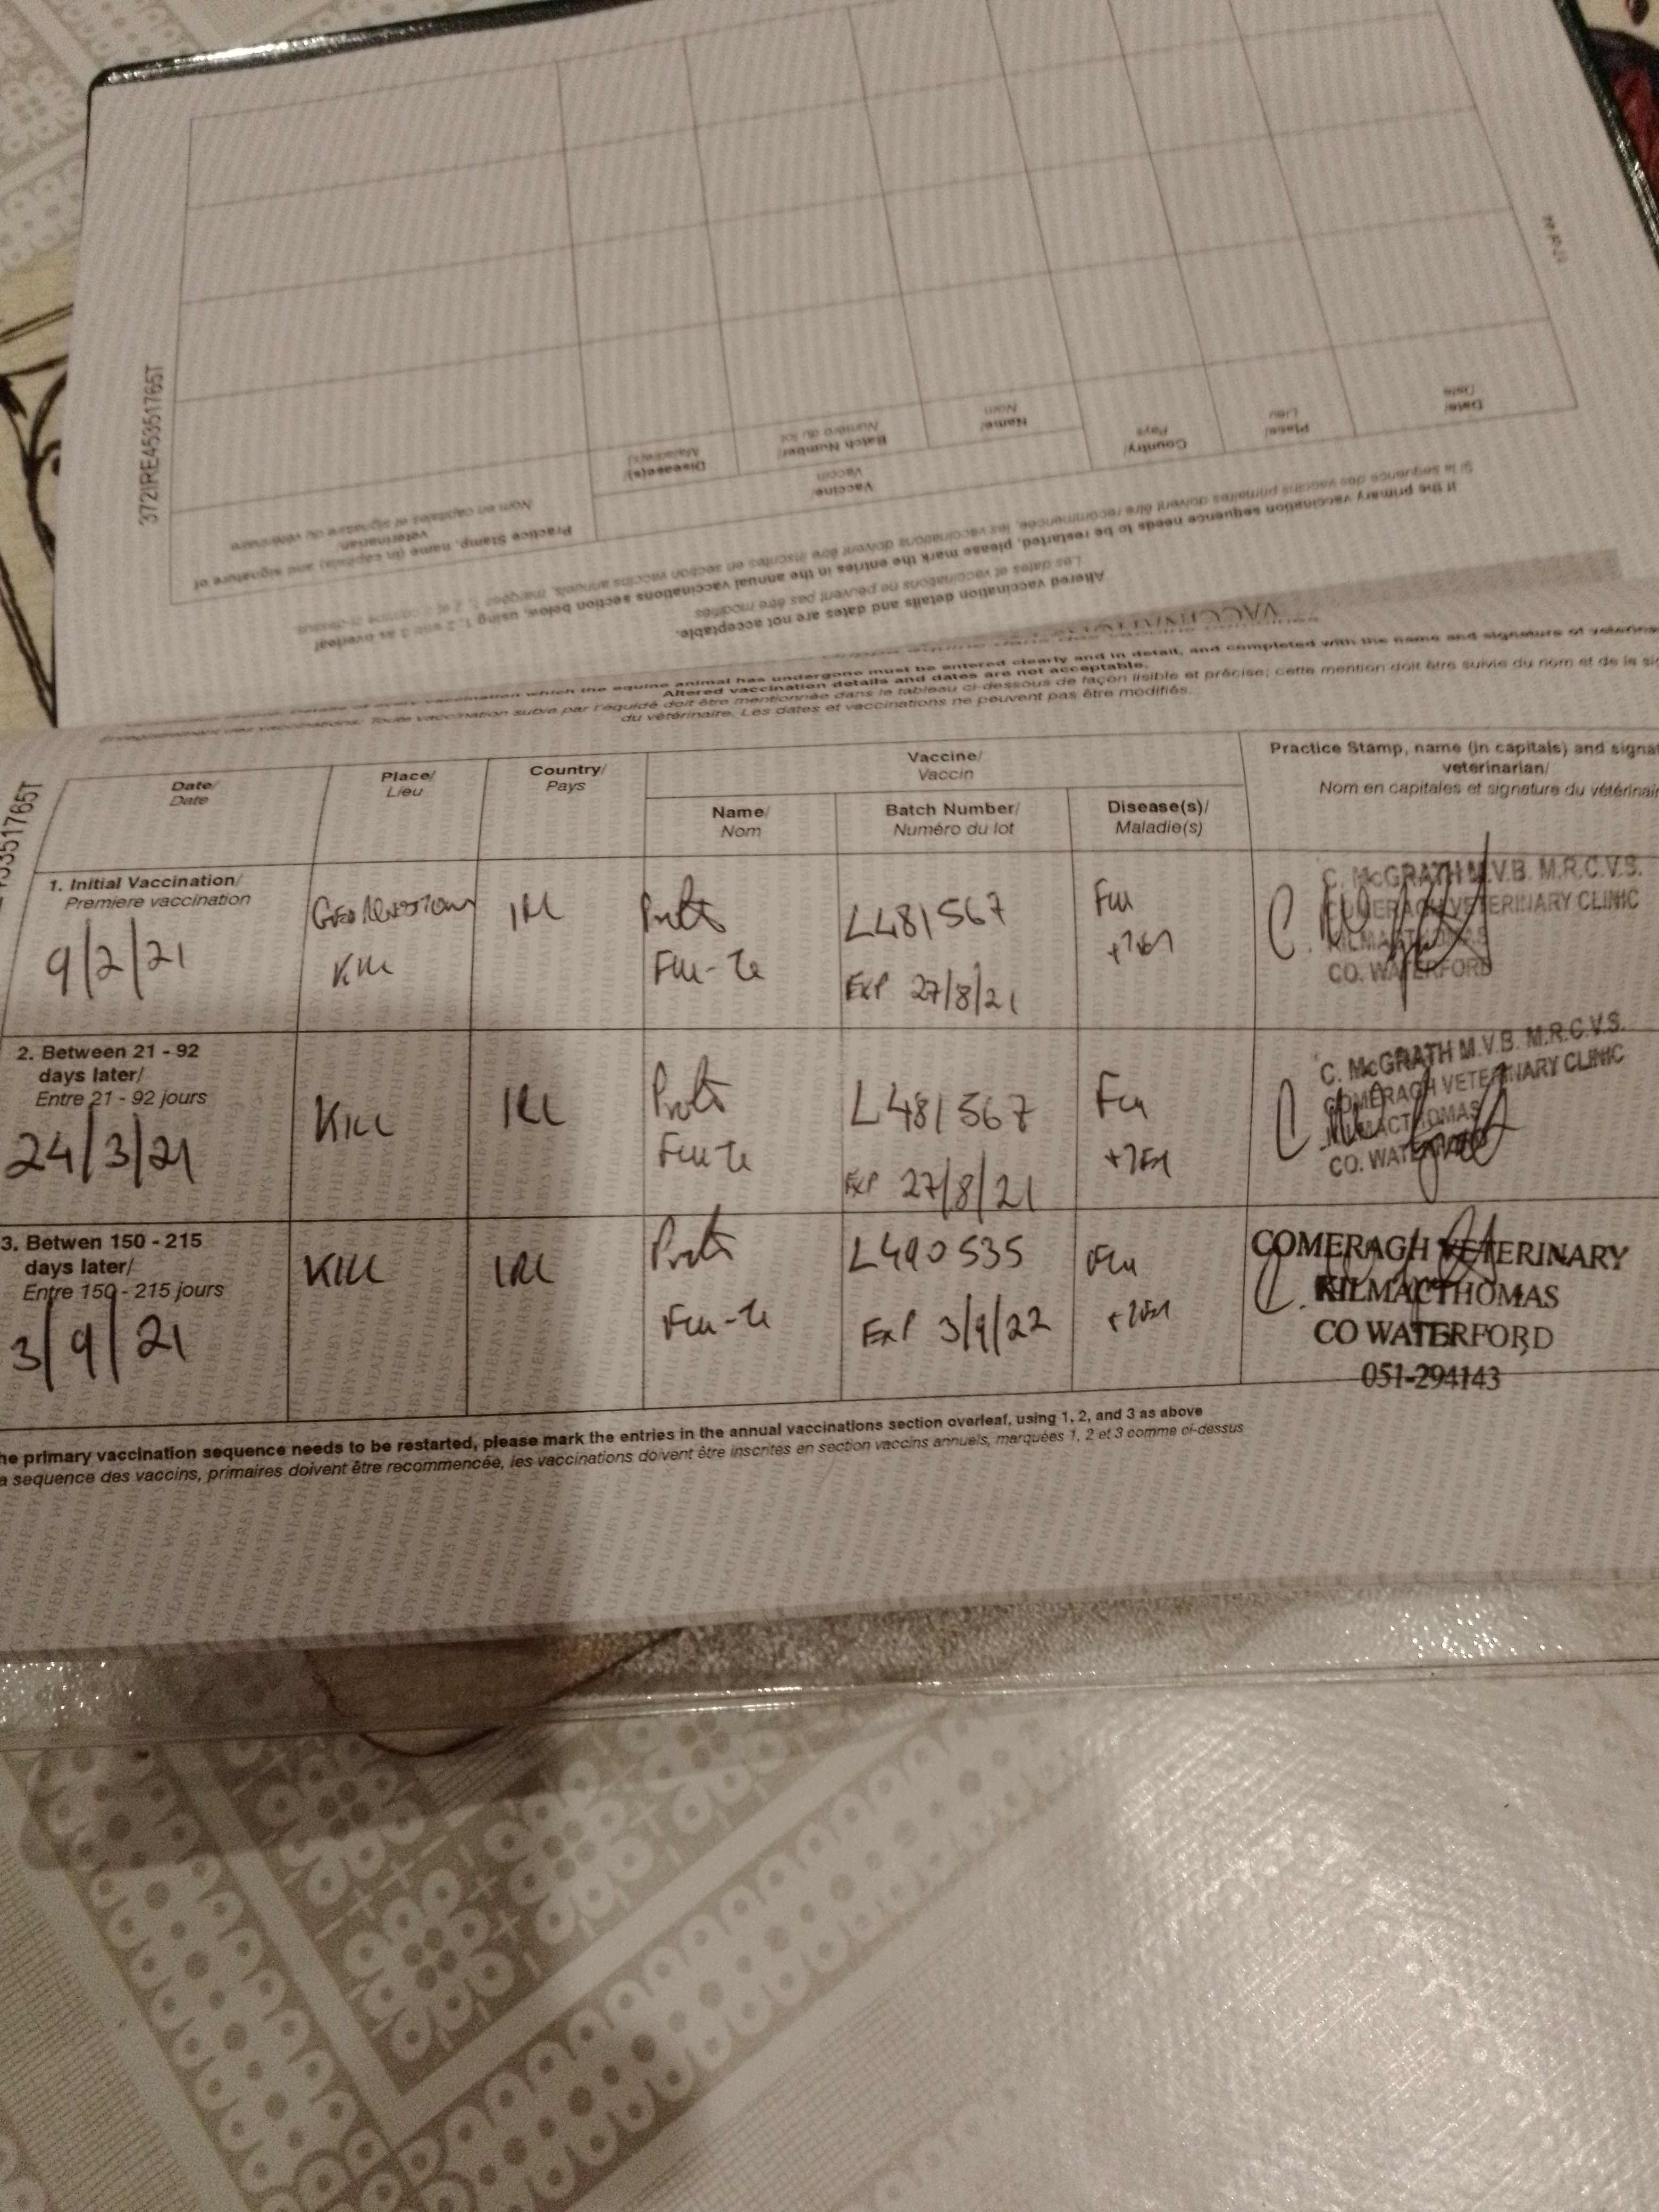 372IRE45351765T
Practice Stamp, name (in capitals) and signature of
veterinarian/
Nom en capitales et signature du vétérinaire
Vaccine/
Vaccin
Disease(s)/
Maladie(s)
Batch Number/
Numéro du lot
Name/
Nom
Country/
Pays
Place/
Lieu
Date/
Date
If the primary vaccination sequence needs to be restarted, please mark the entries in the annual vaccinations section below, using 1, 2 and 3 as overleaf
Altered vaccination details and dates are not acceptable.
Les dates et vaccinations ne peuvent pas être modifiés
vaccination which the equine animal has undergone must be entered clearly and in detail, and completed with the name and signature of
Altered vaccination details and dates are not acceptable.
Toute vaccination subie par l'équidé doit être mentionnée dans le tableau ci-dessous de façon lisible et précise; cette mention doit être suivie du nom et de la
du vétérinaire. Les dates et vaccinations ne peuvent pas être modifiés.
5351765T
Date/
Date
Place/
Lieu
Country/
Pays
Vaccine/
Vaccin
Name/
Nom
Batch Number/
Numéro du lot
Disease(s)/
Maladie(s)
Practice Stamp, name (in capitals) and
veterinarian/
Nom en capitales et signature du
1. Initial Vaccination/
Premiere vaccination
9/2/21
Kill
IRL
Flu-Te
L481567
EXP 27/8/21
Flu
C. McGRATH M.V.B. M.R.C.V.S.
COMERAGH VETERINARY CLINIC
KILMACTHOMAS
CO. WATERFORD
2. Between 21 - 92
days later/
Entre 21 - 92 jours
24/3/21
Kill
IRL
Flu-Te
L481567
EXP 27/8/21
Flu
C. McGRATH M.V.B. M.R.C.V.S.
COMERAGH VETERINARY CLINIC
KILMACTHOMAS
CO. WATERFORD
3. Betwen 150 - 215
days later/
Entre 150 - 215 jours
3/9/21
Kill
IRL
Flu-Te
L490535
EXP 3/9/22
Flu
COMERAGH VETERINARY
KILMACTHOMAS
CO WATERFORD
051-294143
he primary vaccination sequence needs to be restarted, please mark the entries in the annual vaccinations section overleaf, using 1, 2, and 3 as above
a sequence des vaccins, primaires doivent être recommencée, les vaccinations doivent être inscrites en section vaccins annuels, marquées 1, 2 et 3 comme ci-dessus